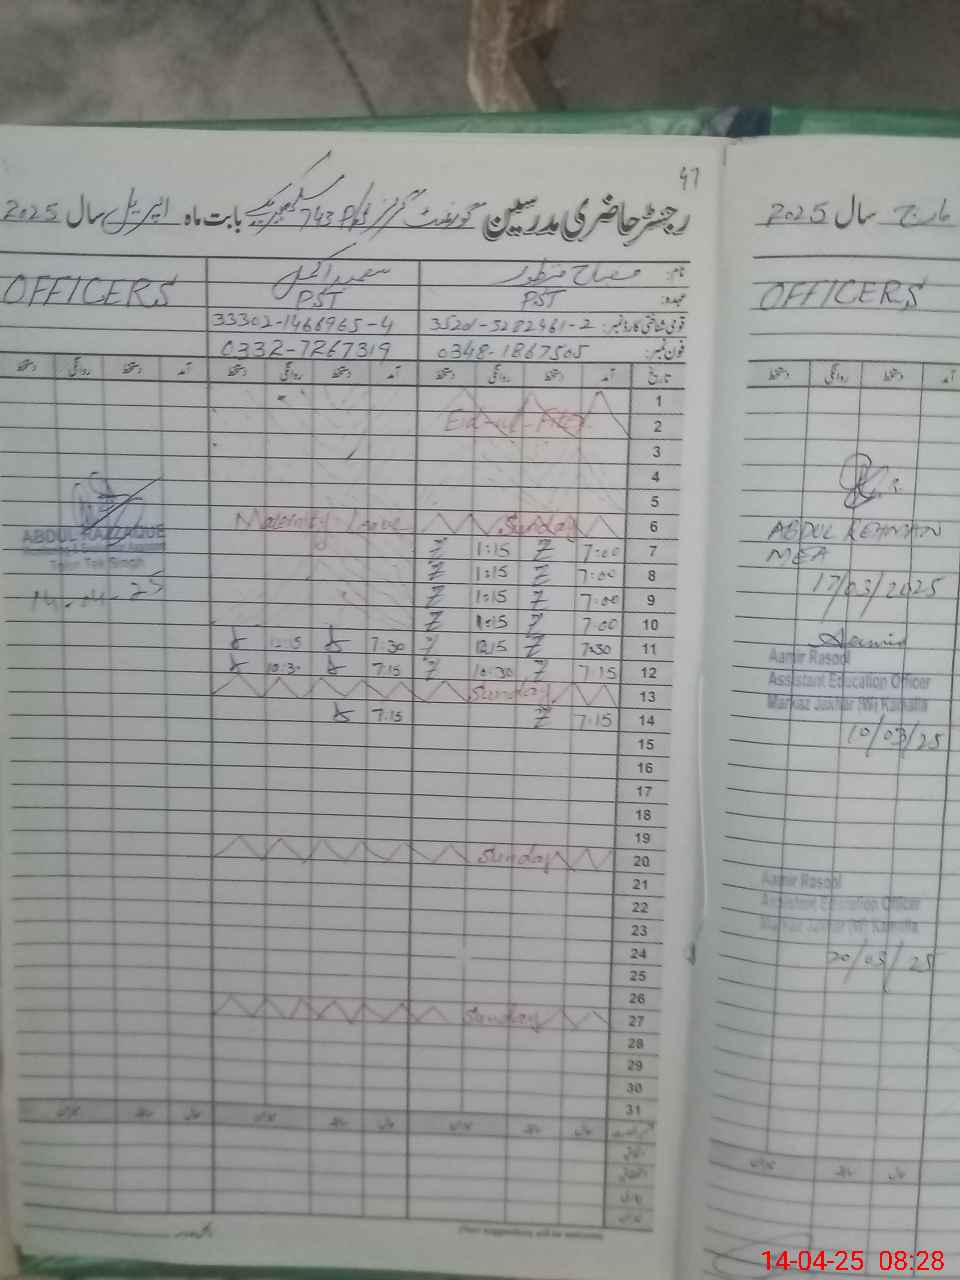 47
رجسٹر حاضری مدرسین گورنمنٹ گرلز 743 بابت ماہ اپریل سال 2025
OFFICERS
نام:
PST PST
عہدہ:
قومی شناختی کارڈ نمبر: 35201-5282461-2 33302-1466965-4
فون نمبر: 0348-1867505 0332-7267319
تاریخ آمد دستخط روانگی دستخط آمد دستخط روانگی دستخط آمد دستخط روانگی دستخط
1
2 Eid-ul-Fiter
3
4
5
6 Sunday Maternity Leave
7 7:00 1:15
8 7:00 1:15
9 7:00 1:15
10 7:00 1:15
11 7:30 12:15 7:30 12:15
12 7:15 10:30 7:15 10:30
13 Sunday
14 7:15 7:15
15
16
17
18
19
20 Sunday
21
22
23
24
25
26
27 Sunday
28
29
30
31
ABDUL RAZZAQUE
Toba Tek Singh
14-04-25
مارچ سال 2025
OFFICERS
آمد دستخط روانگی دستخط
ABDUL REHMAN
MEA
17/03/2025
Aamir Rasool
Assistant Education Officer
Markaz Jakhar (W) Kamalia
10/03/25
Aamir Rasool
Assistant Education Officer
Markaz Jakhar (W) Kamalia
20/03/25
14-04-25 08:28